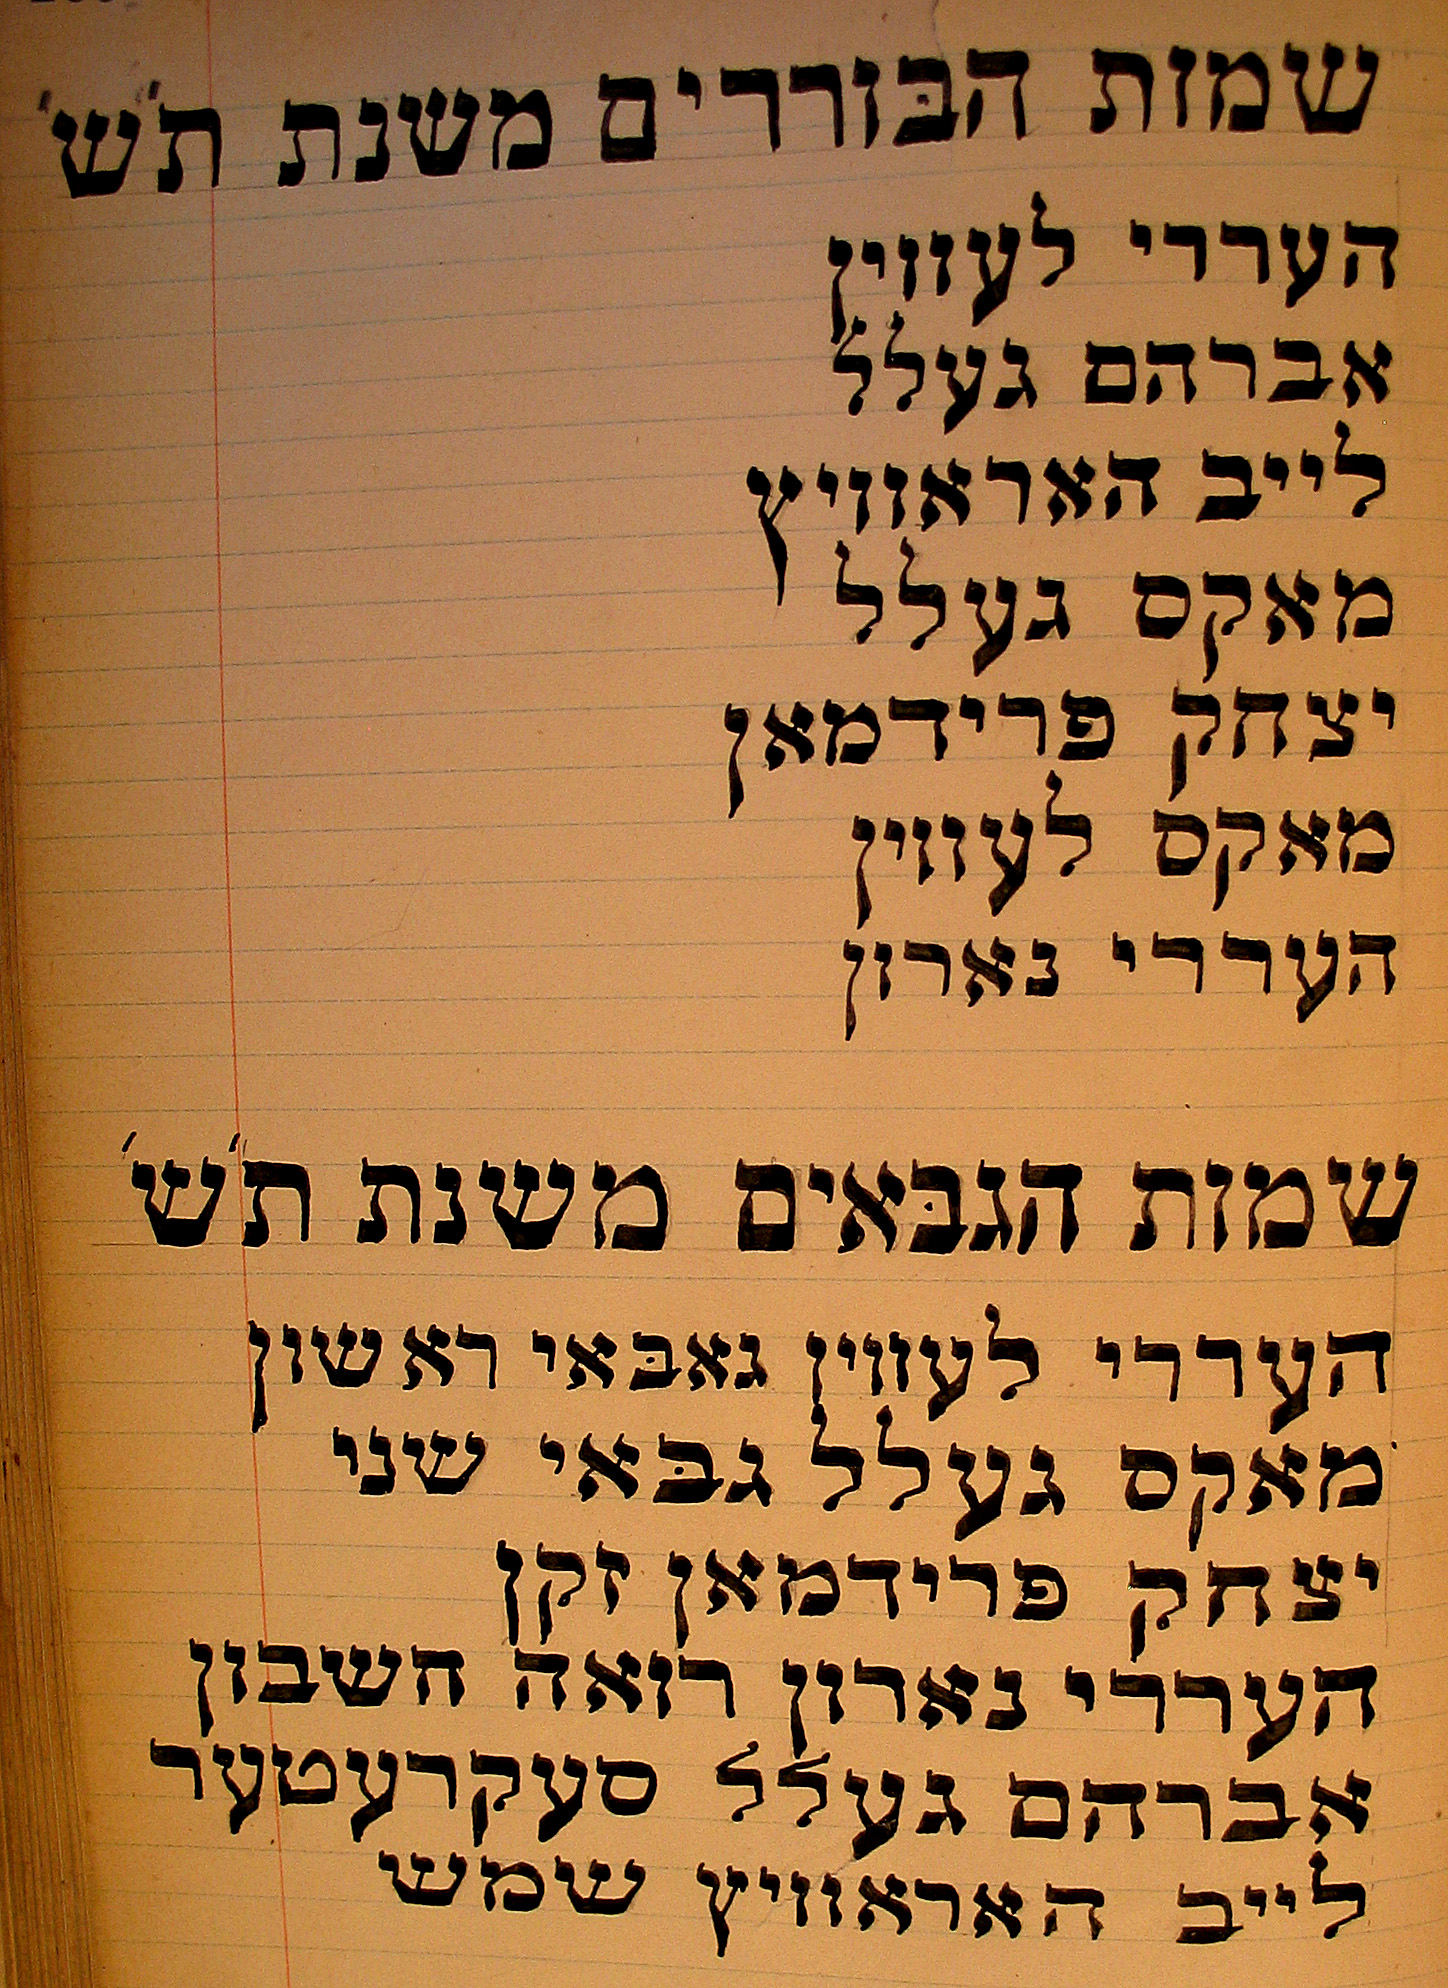 שמות הבּוררים משנת ת'ש'
העררי לעווין
אברהם געלל
לייב האראוויץ
מאקס געלל
יצחק פרידמאן
מאקס לעווין
העררי נארון
שמות הגבּאים משנת ת'ש'
העררי לעווין גאבּאי ראשון
מאקס געלל גבּאי שני
יצחק פרידמאן זקן
העררי נארון רואה חשבון
אברהם געלל סעקרעטער
לייב האראוויץ שמש